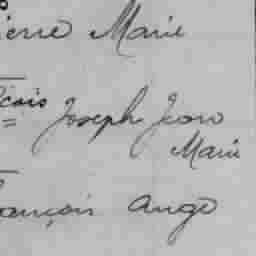 ierre Marie
çois Joseph Jean
Marie
ançois Ange